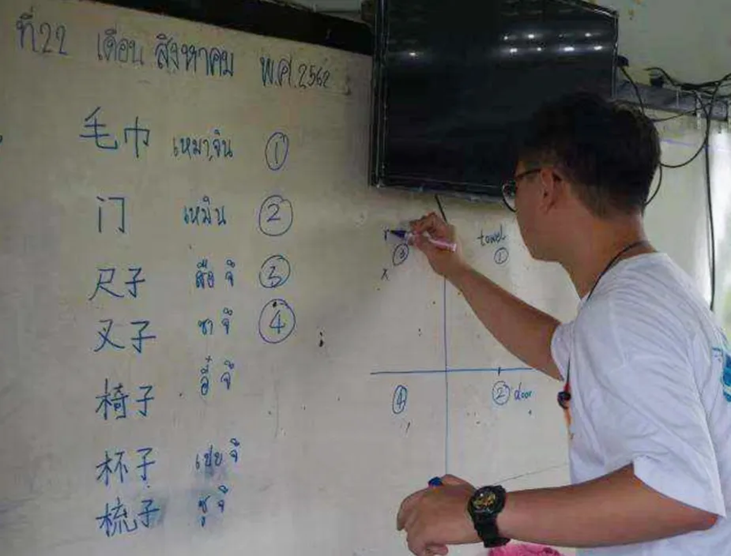 ที่ 22 เดือน สิงหาคม พ.ศ. 2562
毛巾 เหมาจิน ①
门 เหมิน ②
尺子 ฉือ จึ ③
叉子 ชา จึ ④
椅子 อี่ จึ
杯子 เปย จึ
梳子 ซู จึ
③
x
towel
①
④
② door